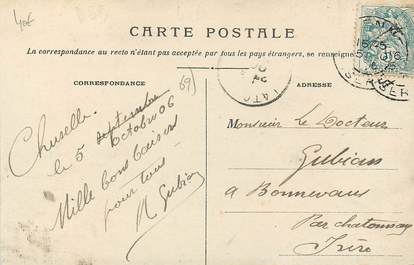 40€
CARTE POSTALE
La correspondance au recto n'étant pas acceptée par tous les pays étrangers, se renseigner
CORRESPONDANCE
ADRESSE
69)
Chuzelle
le 5 septembre
octobre 06
Mille bons baisers
pour tous
M Gubian
Monsieur Le Docteur
Gubian
a Bonnevaux
Par chatonnay
Isère